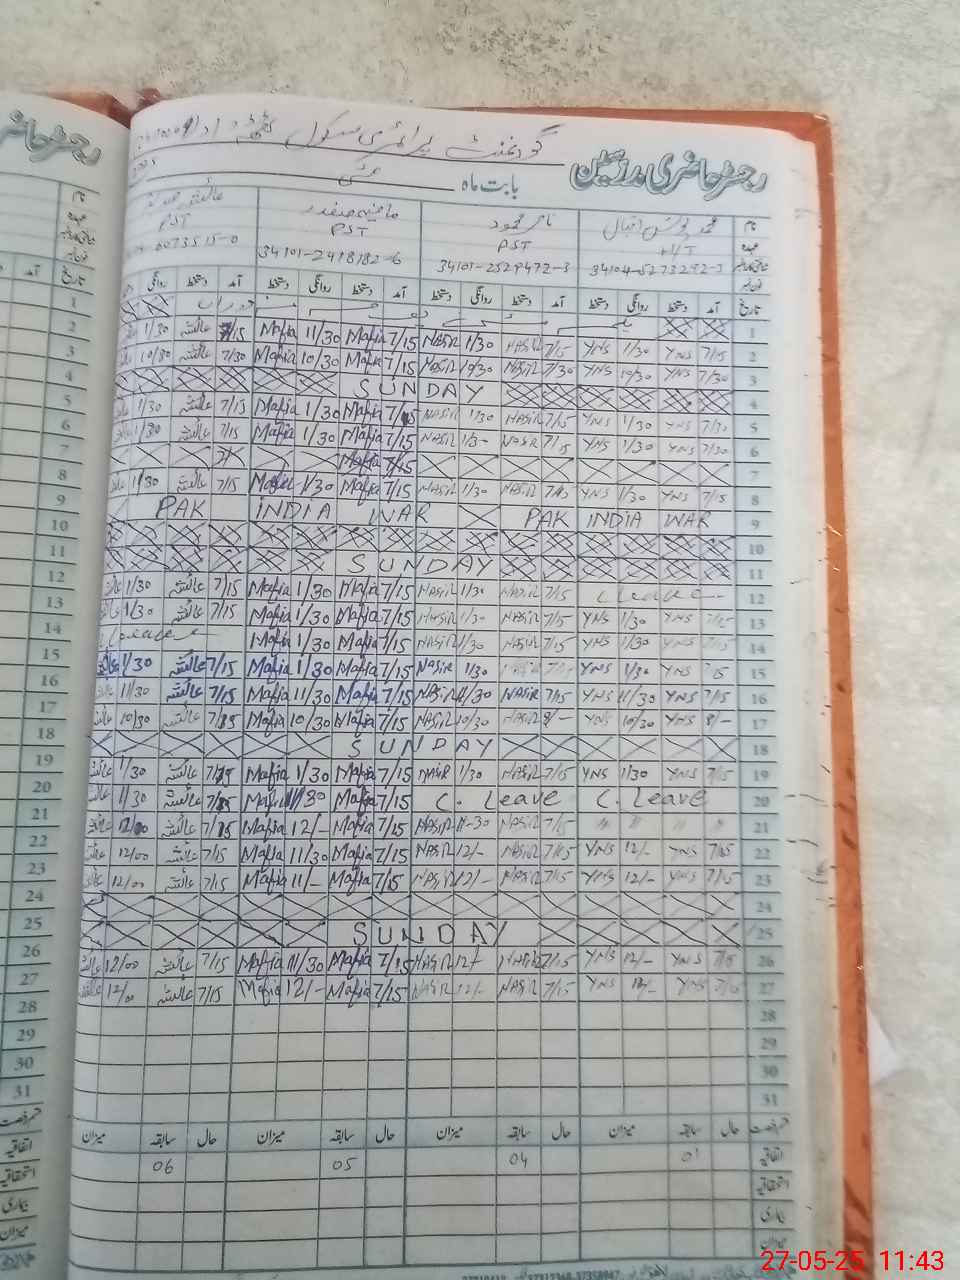 رجسٹر حاضری مدرسین گورنمنٹ پرائمری سکول
بابت ماہ مئی
نام محمد یونس اقبال ناصر محمود مافیہ صفدر
عہدہ PST PST PST
34104-5273292-3 34101-2529472-3 34101-2918182-6
تاریخ آمد دستخط روانگی دستخط آمد دستخط روانگی دستخط آمد دستخط روانگی دستخط آمد دستخط روانگی
1
2 7/15 YNS 1/30 YNS 7/15 NASIR 1/30 NASIR 7/15 Mafia 11/30 Mafia 7/15 عائشہ 1/30
3 7/30 YNS 10/30 YNS 7/30 NASIR 10/30 NASIR 7/15 Mafia 10/30 Mafia 7/30 عائشہ 10/30
4 SUNDAY
5 7/30 YNS 1/30 YNS 7/15 NASIR 1/30 NASIR Mafia 1/30 Mafia 7/15 عائشہ 1/30
6 7/30 YNS 1/30 YNS 7/15 NASIR NASIR 7/15 Mafia 1/30 Mafia 7/15 عائشہ 1/30
7 7/15 Mafia
8 7/15 YNS 1/30 YNS 7/15 NASIR 1/30 NASIR 7/15 Mafia 1/30 Mafia 7/15 عائشہ 1/30
9 PAK INDIA WAR PAK INDIA WAR
10
11 SUNDAY
12 C leave 7/15 NASIR 1/30 NASIR 7/15 Mafia 1/30 Mafia 7/15 عائشہ 1/30
13 7/15 YNS 1/30 YNS 7/15 NASIR 1/30 NASIR 7/15 Mafia 1/30 Mafia 7/15 عائشہ 1/30
14 7/15 YNS 1/30 YNS 7/15 NASIR 1/30 NASIR 7/15 Mafia 1/30 Mafia C leave
15 YNS 1/30 YNS NASIR 1/30 NASIR 7/15 Mafia 1/30 Mafia 7/15 عائشہ 1/30
16 7/15 YNS 11/30 YNS 7/15 NASIR 11/30 NASIR 7/15 Mafia 11/30 Mafia 7/15 عائشہ 11/30
17 8/- YNS 10/30 YNS 8/- NASIR 10/30 NASIR 7/15 Mafia 10/30 Mafia عائشہ 10/30
18 SUNDAY
19 7/15 YNS 1/30 YNS 7/15 NASIR 1/30 NASIR 7/15 Mafia 1/30 Mafia عائشہ 1/30
20 C. Leave C. Leave 7/15 Mafia Mafia عائشہ 1/30
21 " " " " 7/15 NASIR 11-30 NASIR 7/15 Mafia 12/- Mafia 7/15 عائشہ 12/00
22 7/15 YNS 12/- YNS 7/15 NASIR 12/- NASIR 7/15 Mafia 11/30 Mafia 7/15 عائشہ 12/00
23 7/15 YNS 12/- YNS 7/15 NASIR 12/- NASIR 7/15 Mafia 11/- Mafia 7/15 عائشہ 12/00
24
25 SUNDAY
26 7/15 YNS 12/- YNS 7/15 NASIR NASIR 7/15 Mafia 11/30 Mafia 7/15 عائشہ 12/00
27 YNS 12/- YNS 7/15 NASIR 12/- NASIR 7/15 Mafia 12/- Mafia 7/15 عائشہ
28
29
30
31
قسم رخصت حال سابقہ میزان حال سابقہ میزان حال سابقہ میزان حال سابقہ میزان
اتفاقیہ 01 04 05 06
استحقاقیہ
بیماری
میزان
27-05-25 11:43